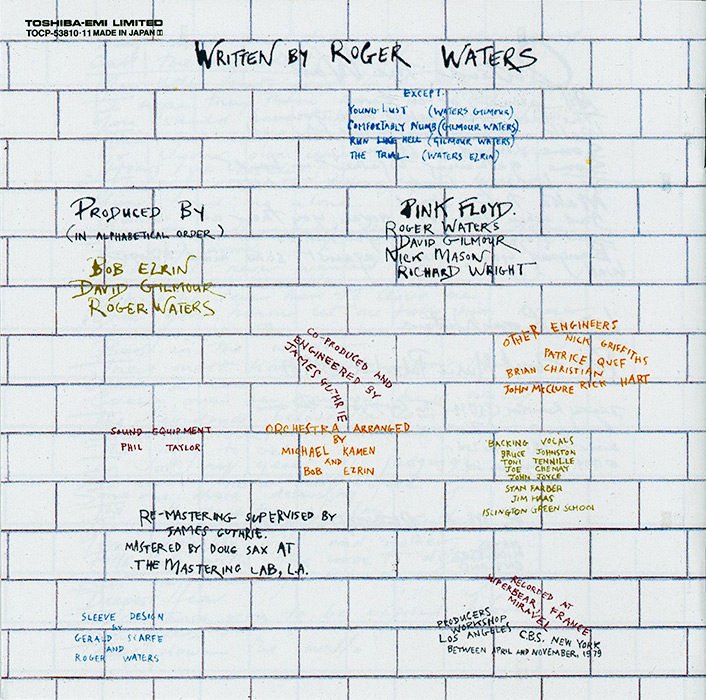 TOSHIBA-EMI LIMITED
TOCP-53810·11 MADE IN JAPAN
WRITTEN BY ROGER WATERS
EXCEPT:
YOUNG LUST (WATERS GILMOUR)
COMFORTABLY NUMB (GILMOUR WATERS)
RUN LIKE HELL (GILMOUR WATERS)
THE TRIAL (WATERS EZRIN)
PRODUCED BY
(IN ALPHABETICAL ORDER)
BOB EZRIN
DAVID GILMOUR
ROGER WATERS
PINK FLOYD.
ROGER WATERS
DAVID GILMOUR
NICK MASON
RICHARD WRIGHT
CO-PRODUCED AND
ENGINEERED BY
JAMES GUTHRIE
OTHER ENGINEERS
NICK GRIFFITHS
PATRICE QUEF
BRIAN CHRISTIAN
JOHN McCLURE RICK HART
SOUND EQUIPMENT
PHIL TAYLOR
ORCHESTRA ARRANGED
BY
MICHAEL KAMEN
AND
BOB EZRIN
BACKING VOCALS
BRUCE JOHNSTON
TONI TENNILLE
JOE CHEMAY
JOHN JOYCE
STAN FARBER
JIM HAAS
ISLINGTON GREEN SCHOOL
RE-MASTERING SUPERVISED BY
JAMES GUTHRIE.
MASTERED BY DOUG SAX AT
THE MASTERING LAB, L.A.
SLEEVE DESIGN
BY
GERALD SCARFE
AND
ROGER WATERS
RECORDED AT
SUPERBEAR, FRANCE
MIRAVEL
PRODUCERS
WORKSHOP
LOS ANGELES C.B.S. NEW YORK
BETWEEN APRIL AND NOVEMBER, 1979